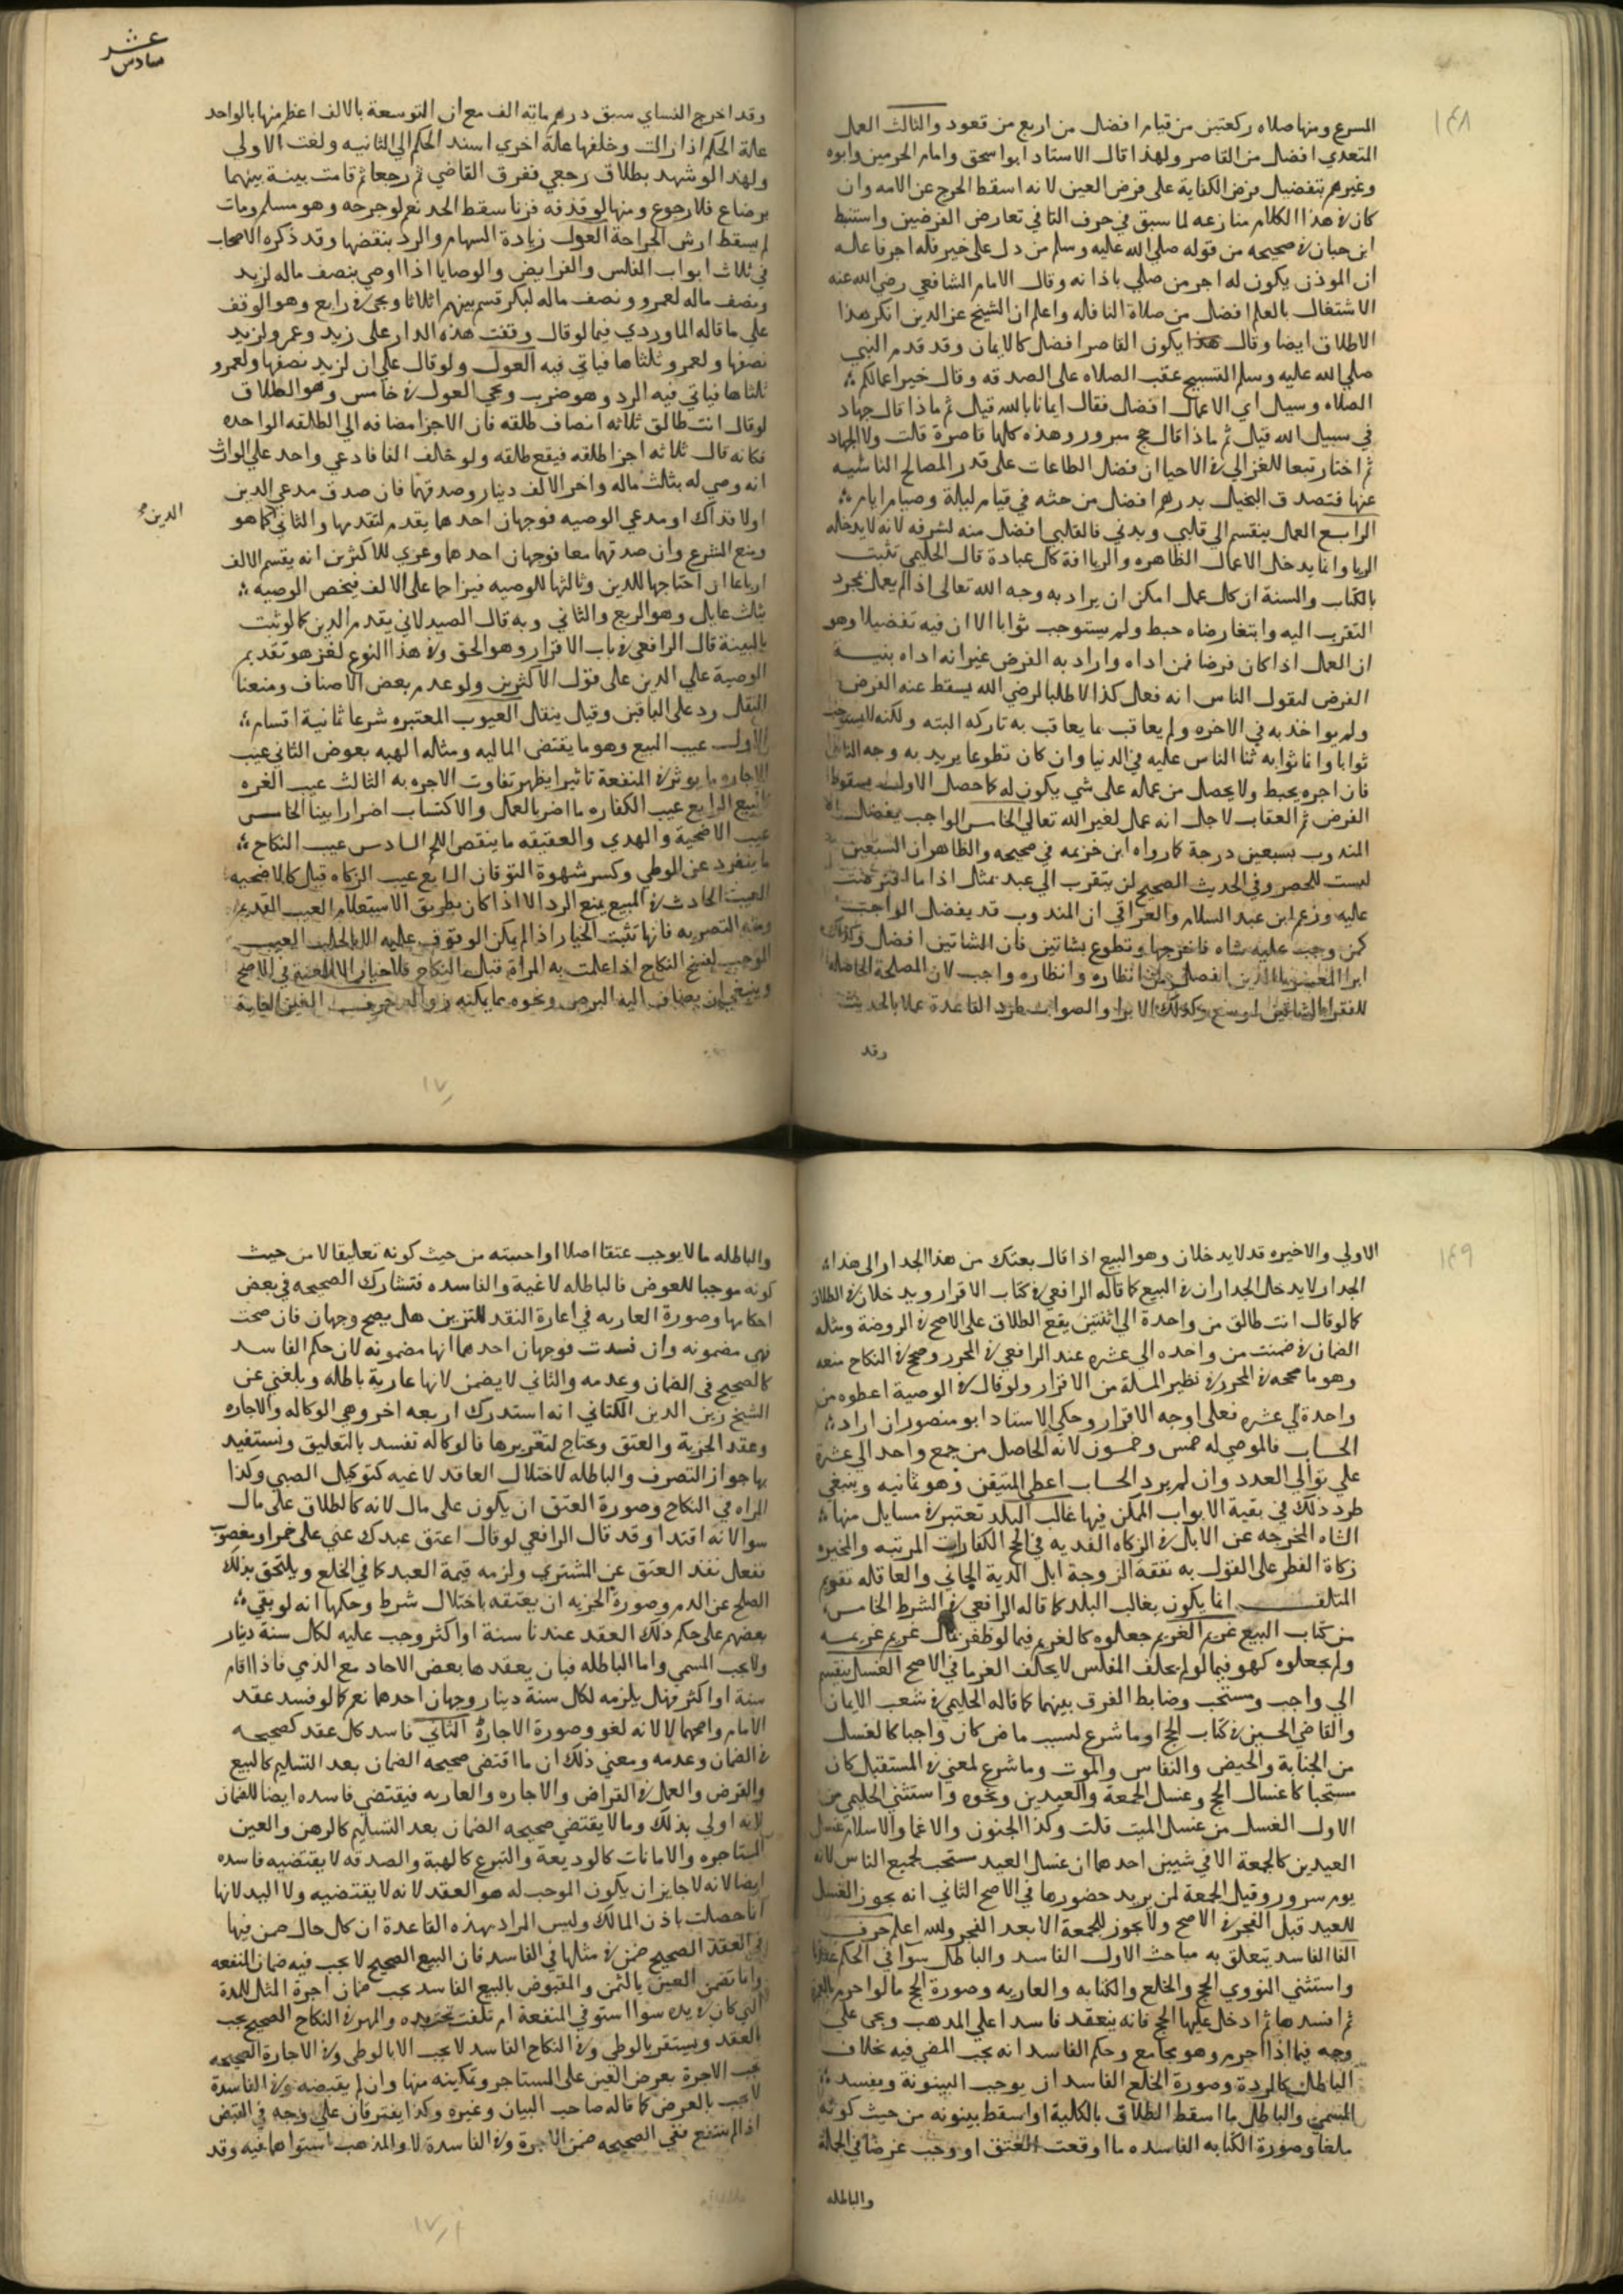 ١٤٨
المسرع ومنها صلاه ركعتين من قيام افضل من اربع من قعود والثالث العمل
المتعدي افضل من القاصر ولهذا قال الاستاد ابو اسحق وامام الحرمين وابوه
وغيرهم بتفضيل فرض الكفاية على فرض العين لانه اسقط الحرج عن الامه وان
كان في هذا الكلام منازعه لما سبق في حرف التا في تعارض الفرضين واستنبط
ابن حبان في صحيحه من قوله صلي الله عليه وسلم من دل على خير فله اجر فاعله
ان الموذن يكون له اجر من صلي باذانه وقال الامام الشافعي رضي الله عنه
الاشتغال بالعلم افضل من صلاة النافله واعلم ان الشيخ عز الدين انكر هذا
الاطلاق ايضا وقال يكون القاصر افضل كالايمان وقد قدم النبي
صلي الله عليه وسلم التسبيح عقب الصلاه على الصدقه وقال خير اعمالكم
الصلاه وسيل اي الاعمال افضل فقال ايمانا بالله قيل ثم ماذا قال جهاد
في سبيل الله قيل ثم ماذا قال حج مبرور وهذه كلها قاصرة قلت ولا الجهاد
ثم اختار تبعا للغزالي في الاحيا ان فضل الطاعات على قدر المصالح الناشيه
عنها فتصدق البخيل بدرهم افضل من حثه في قيام ليلة وصيام ايام
الرابع العمل ينقسم الي قلبي وبدني فالقلبي افضل منه لشرفه لانه لا يدخله
الريا وانما يدخل الاعمال الظاهره والريا افة كل عبادة قال الحليمي تثبت
بالكتاب والسنة ان كل عمل امكن ان يراد به وجه الله تعالى اذا لم يعمل لمجرد
التقرب اليه وابتغا رضاه حبط ولم يستوجب ثوابا الا ان فيه تفضيلا وهو
ان العمل اذا كان فرضا فمن اداه واراد به الفرض غير انه اداه بنية
الفرض ليقول الناس انه فعل كذا لا طلبا لرضي الله يسقط عنه الفرض
ولم يواخذ به في الاخره ولم يعاقب بما يعاقب به تاركه البته ولكنه لا يستوجب
ثوابا وانما ثوابه ثنا الناس عليه في الدنيا وان كان تطوعا يريد به وجه الناس
فان اجره يحبط ولا يحصل من عمله على شي يكون له كما حصل الاول سقوط
الفرض ثم العقاب لاجل انه عمل لغير الله تعالي الخامس الواجب يفضل
المندوب بسبعين درجة كما رواه ابن خزيمه في صحيحه والظاهر ان السبعين
ليست للحصر وفي الحديث الصحيح لن يتقرب الي عبد بمثل اذا ما افترضت
عليه وزعم ابن عبد السلام والعراقي ان المندوب قد يفضل الواجب
كمن وجب عليه شاه فاخرجها وتطوع بشاتين فان الشاتين افضل وكذلك
ابرا المعسر من الدين افضل من انظاره وانظاره واجب لان المصلحة الحاصله
للفقرا بالشاتين اوسع وكذلك الابرا والصواب طرد القاعدة عملا بالحديث
وقد
عشر
سادس
وقد اخرج النساي سبق درهم مايه الف مع ان التوسعة بالالف اعظم منها بالواحد
علة الحكم اذا زالت وخلفها علة اخري اسند الحكم الي الثانيه ولغت الاولي
ولهذا لو شهد بطلاق رجعي ففرق القاضي ثم رجعا ثم قامت بينة بينهما
برضاع فلا رجوع ومنها لو قذفه فزنا سقط الحد نعم لو جرحه وهو مسلم ومات
لم يسقط ارش الجراحة العول زيادة السهام والرد بنقضها وقد ذكره الاصحاب
في ثلاث ابواب الفلس والفرايض والوصايا اذا اوصي بنصف ماله لزيد
ونصف ماله لعمرو ونصف ماله لبكر قسم بينهم اثلاثا ويجي في رابع وهو الوقف
علي ما قاله الماوردي فيما لو قال وقفت هذه الدار على زيد وعمر ولزيد
نصفها ولعمرو ثلثاها فياتي فيه العول ولو قال على ان لزيد نصفها ولعمرو
ثلثاها فياتي فيه الرد وهو ضرب ويجي العول في خامس وهو الطلاق
لو قال انت طالق ثلاثه انصاف طلقه فان الاجزا مضافه الي الطلقه الواحده
فكانه قال ثلاثه اجزا طلقه فيقع طلقه ولو خلف الفا فادعي واحد علي الوارث
انه وصي له بثلث ماله واخر الالف دينار وصدقهما فان صدق مدعي الدين
الدين
اولا فذاك او مدعي الوصيه فوجهان احدها يقدم لتقدمها والثاني كما هو
وضع الشرع وان صدقهما معا فوجهان احدهما وعزي للاكثرين انه يقسم الالف
ارباعا ان احتاجها للدين وثالثها للوصيه فيزاحما على الالف فيخص الوصيه
بثلث عايل وهو الربع والثاني وبه قال الصيدلاني يقدم الدين كما لو ثبت
بالبينة قال الرافعي في باب الاقرار وهو الحق وفي هذا النوع لغز هو تقديم
الوصية علي الدين على قول الاكثرين ولو عدم بعض الاصناف ومنعنا
النقل رد على الباقين وقيل ينقل العيوب المعتبره شرعا ثمانية اقسام
الاول عيب البيع وهو ما يقتضي الماليه ومثاله الهبه بعوض الثاني عيب
الاجاره ما يوثر في المنفعة تاثيرا يظهر تفاوت الاجره به الثالث عيب الغره
كالبيع الرابع عيب الكفاره ما اضر بالعمل والاكتساب اضرارا بينا الخامس
عيب الاضحية والهدي والعقيقه ما ينقص اللحم السادس عيب النكاح
ما ينفرد عن الوطي وكسر شهوة التوقان السابع عيب الزكاه قيل كالاضحيه
العيب الحادث في المبيع يمنع الرد الا اذا كان بطريق الاستعلام العيب القديم
ومنه التصريه فانها تثبت الخيار اذا لم يكن الوقوف عليه الا بالحلب العيب
الموجب لفسخ النكاح اذا علمت به المراة قبل النكاح فلا خيار الا العنة في الاصح
وينبغي ان يضاف اليه البرص ونحوه مما يمكنه زواله حرف الغين الغاية
١٧
١٤٩
الاولي والاخيره قد لا يدخلان وهو البيع اذا قال بعتك من هذا الجدار الى هذا
الجدار لا يدخل الجداران في البيع كما قاله الرافعي في كتاب الاقرار ويدخلان في الطلاق
كما لو قال انت طالق من واحدة الي اثنتين يقع الطلاق على الاصح في الروضة ومثله
الضمان في ضمنت من واحده الي عشره عند الرافعي في المحرر وصحح في النكاح منعه
وهو ما صححه في المحرر في نظير المسلة من الاقرار ولو قال في الوصية اعطوه من
واحدة الي عشره فعلى اوجه الاقرار وحكي الاستاد ابو منصور ان اراد
الحساب فالموصي له خمس وخمسون لانه الحاصل من جمع واحد الي عشرة
علي توالي العدد وان لم يرد الحساب اعطي المتيقن وهو ثمانيه وينبغي
طرد ذلك في بقية الابواب الممكن فيها غالب البلد تعتبر في مسايل منها
الشاه المخرجه عن الابل في الزكاه الفديه في الحج الكفارات المرتبه والمخيره
زكاة الفطر على القول به نفقة الزوجة ابل الدية الجاني والعاقله تقويم
المتلف انما يكون بغالب البلد كما قاله الرافعي في الشرط الخامس
من كتاب البيع غريم الغريم جعلوه كالغريم فيما لو ظفر بمال غريم غريمه
ولم يجعلوه كهو فيما لو لم يحلف المفلس لا يحلف الغرما في الاصح الغسل ينقسم
الي واجب ومستحب وضابط الفرق بينهما كما قاله الحليمي في شعب الايمان
والقاضي الحسين في كتاب الحج او ما شرع لسبب ماض كان واجبا كالغسل
من الجنابة والحيض والنفاس والموت وما شرع لمعني في المستقبل كان
مستحبا كاغسال الحج وغسل الجمعة والعيدين ونحوه واستثني الحليمي من
الاول الغسل من غسل الميت قلت وكذا الجنون والاغما والاسلام غسل
العيدين كالجمعة الا في شيين احدهما ان غسل العيد مستحب لجميع الناس لانه
يوم سرور وقيل الجمعة لمن يريد حضورها في الاصح الثاني انه يجوز الغسل
للعيد قبل الفجر في الاصح ولا يجوز للجمعة الا بعد الفجر والله اعلم حرف
الفا الفاسد يتعلق به مباحث الاول الفاسد والباطل سوا في الحكم عندنا
واستثني النووي الحج والخلع والكتابه والعاريه وصورة الحج ما لو احرم بالعمرة
ثم افسدها ثم ادخل عليها الحج فانه ينعقد فاسدا علي المذهب ويجي علي
وجه فيما اذا احرم وهو مجامع وحكم الفاسد انه يجب المضي فيه بخلاف
الباطل كالردة وصورة الخلع الفاسد ان يوجب البينونة ويفسد
المسمي والباطل ما اسقط الطلاق بالكلية او اسقط بينونه من حيث كونه
ملغا وصورة الكتابه الفاسده ما اوقعت العتق او وجب عوضا في الجملة
والباطله
والباطله ما لا يوجب عتقا اصلا او احسنه من حيث كونه تعليقا لا من حيث
كونه موجبا للعوض فالباطله لاغية والفاسده فتشارك الصحيحه في بعض
احكامها وصورة العاريه في اعارة النقد للتزين هل يصح وجهان فان صحت
فهي مضمونه وان فسدت فوجهان احدهما انها مضمونه لان حكم الفاسد
كالصحيح في الضمان وعدمه والثاني لا يضمن لانها عارية باطله وبلغني عن
الشيخ زين الدين الكتاني انه استدرك اربعه اخر وهي الوكاله والاجاره
وعقد الجزية والعتق ويحتاج لتقريرها فالوكاله تفسد بالتعليق ونستفيد
بها جواز التصرف والباطله لاختلال العاقد لاغيه كتوكيل الصبي وكذا
المراه في النكاح وصورة العتق ان يكون على مال لانه كالطلاق على مال
سوا لانه افتدا وقد قال الرافعي لو قال اعتق عبدك عني على خمر او مغصوب
ففعل نفذ العتق عن المشتري ولزمه قيمة العبد كما في الخلع ويلتحق بذلك
الصلح عن الدم وصورة الجزيه ان يعتقد باختلال شرط وحكمها انه لو بقي
بعضهم على حكم ذلك العقد عندنا سنة او اكثر وجب عليه لكل سنة دينار
ولا يجب المسمي واما الباطله فبان يعقدها بعض الاحاد مع الذمي فاذا اقام
سنة او اكثر فهل يلزمه لكل سنة دينار وجهان احدهما نعم كما لو فسد عقد
الامام واصحهما لا لانه لغو وصورة الاجارة الثاني فاسد كل عقد كصحيحه
في الضمان وعدمه ومعني ذلك ان ما اقتضي صحيحه الضمان بعد التسليم كالبيع
والقرض والعمل في القراض والاجاره والعاريه فيقتضي فاسده ايضا للضمان
لانه اولي بذلك وما لا يقتضي صحيحه الضمان بعد التسليم كالرهن والعين
المستاجره والامانات كالوديعة والتبرع كالهبة والصدقه لا يقتضيه فاسده
ايضا لانه لا جايز ان يكون الموجب له هو العقد لانه لا يقتضيه ولا اليد لانها
انما حصلت باذن المالك وليس المراد بهذه القاعدة ان كل حال ضمن فيها
في العقد الصحيح ضمن في مثلها في الفاسد فان البيع الصحيح لا يجب فيه ضمان المنفعه
وانما تضمن العين بالثمن والمقبوض بالبيع الفاسد يجب ضمان اجرة المثل للمدة
التي كان في يده سوا استوفي المنفعة ام تلفت تحت يده والمهر في النكاح الصحيح يجب
العقد ويستقر بالوطي وفي النكاح الفاسد لا يجب الا بالوطي وفي الاجارة الصحيحه
تجب الاجرة بعرض العين على المستاجر وتمكينه منها وان لم يقبضه وفي الفاسدة
لا تجب بالعرض كما قاله صاحب البيان وغيره وكذا يفترقان علي وجه في القبض
اذا لم ينتفع ففي الصحيحه ضمن الاجرة وفي الفاسدة لا والمذهب استواهما فيه وقد